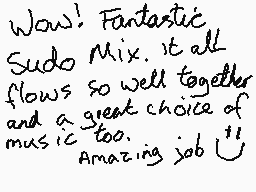 Wow! Fantastic
Sudo Mix. it all
flows so well together
and a great choice of
music too.
Amazing job